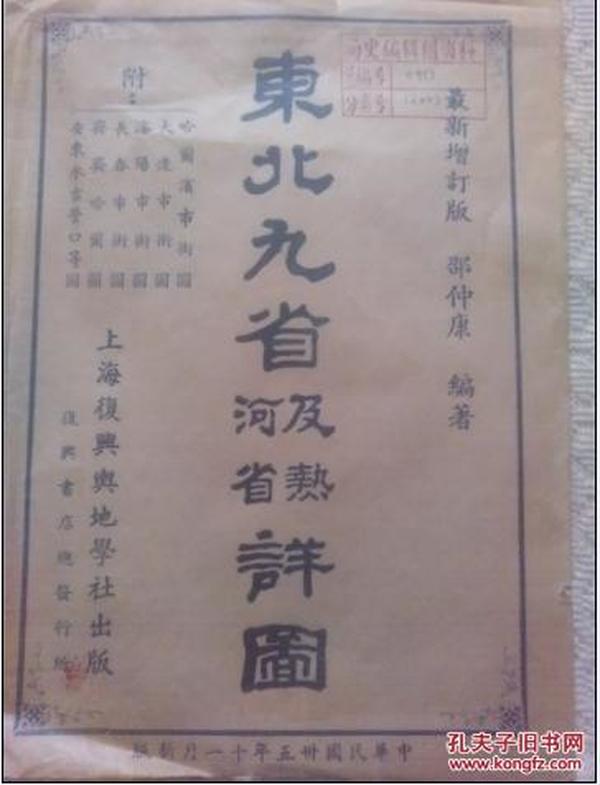 最新增訂版 邵仲康 編著
東北九省及熱河省詳圖
附：
哈爾濱市街圖
大連市街圖
瀋陽市街圖
長春市街圖
齊齊哈爾圖
安東永吉營口等圖
上海復興輿地學社出版
復興書店總發行所
中華民國卅五年十一月新版
孔夫子旧书网
www.kongfz.com